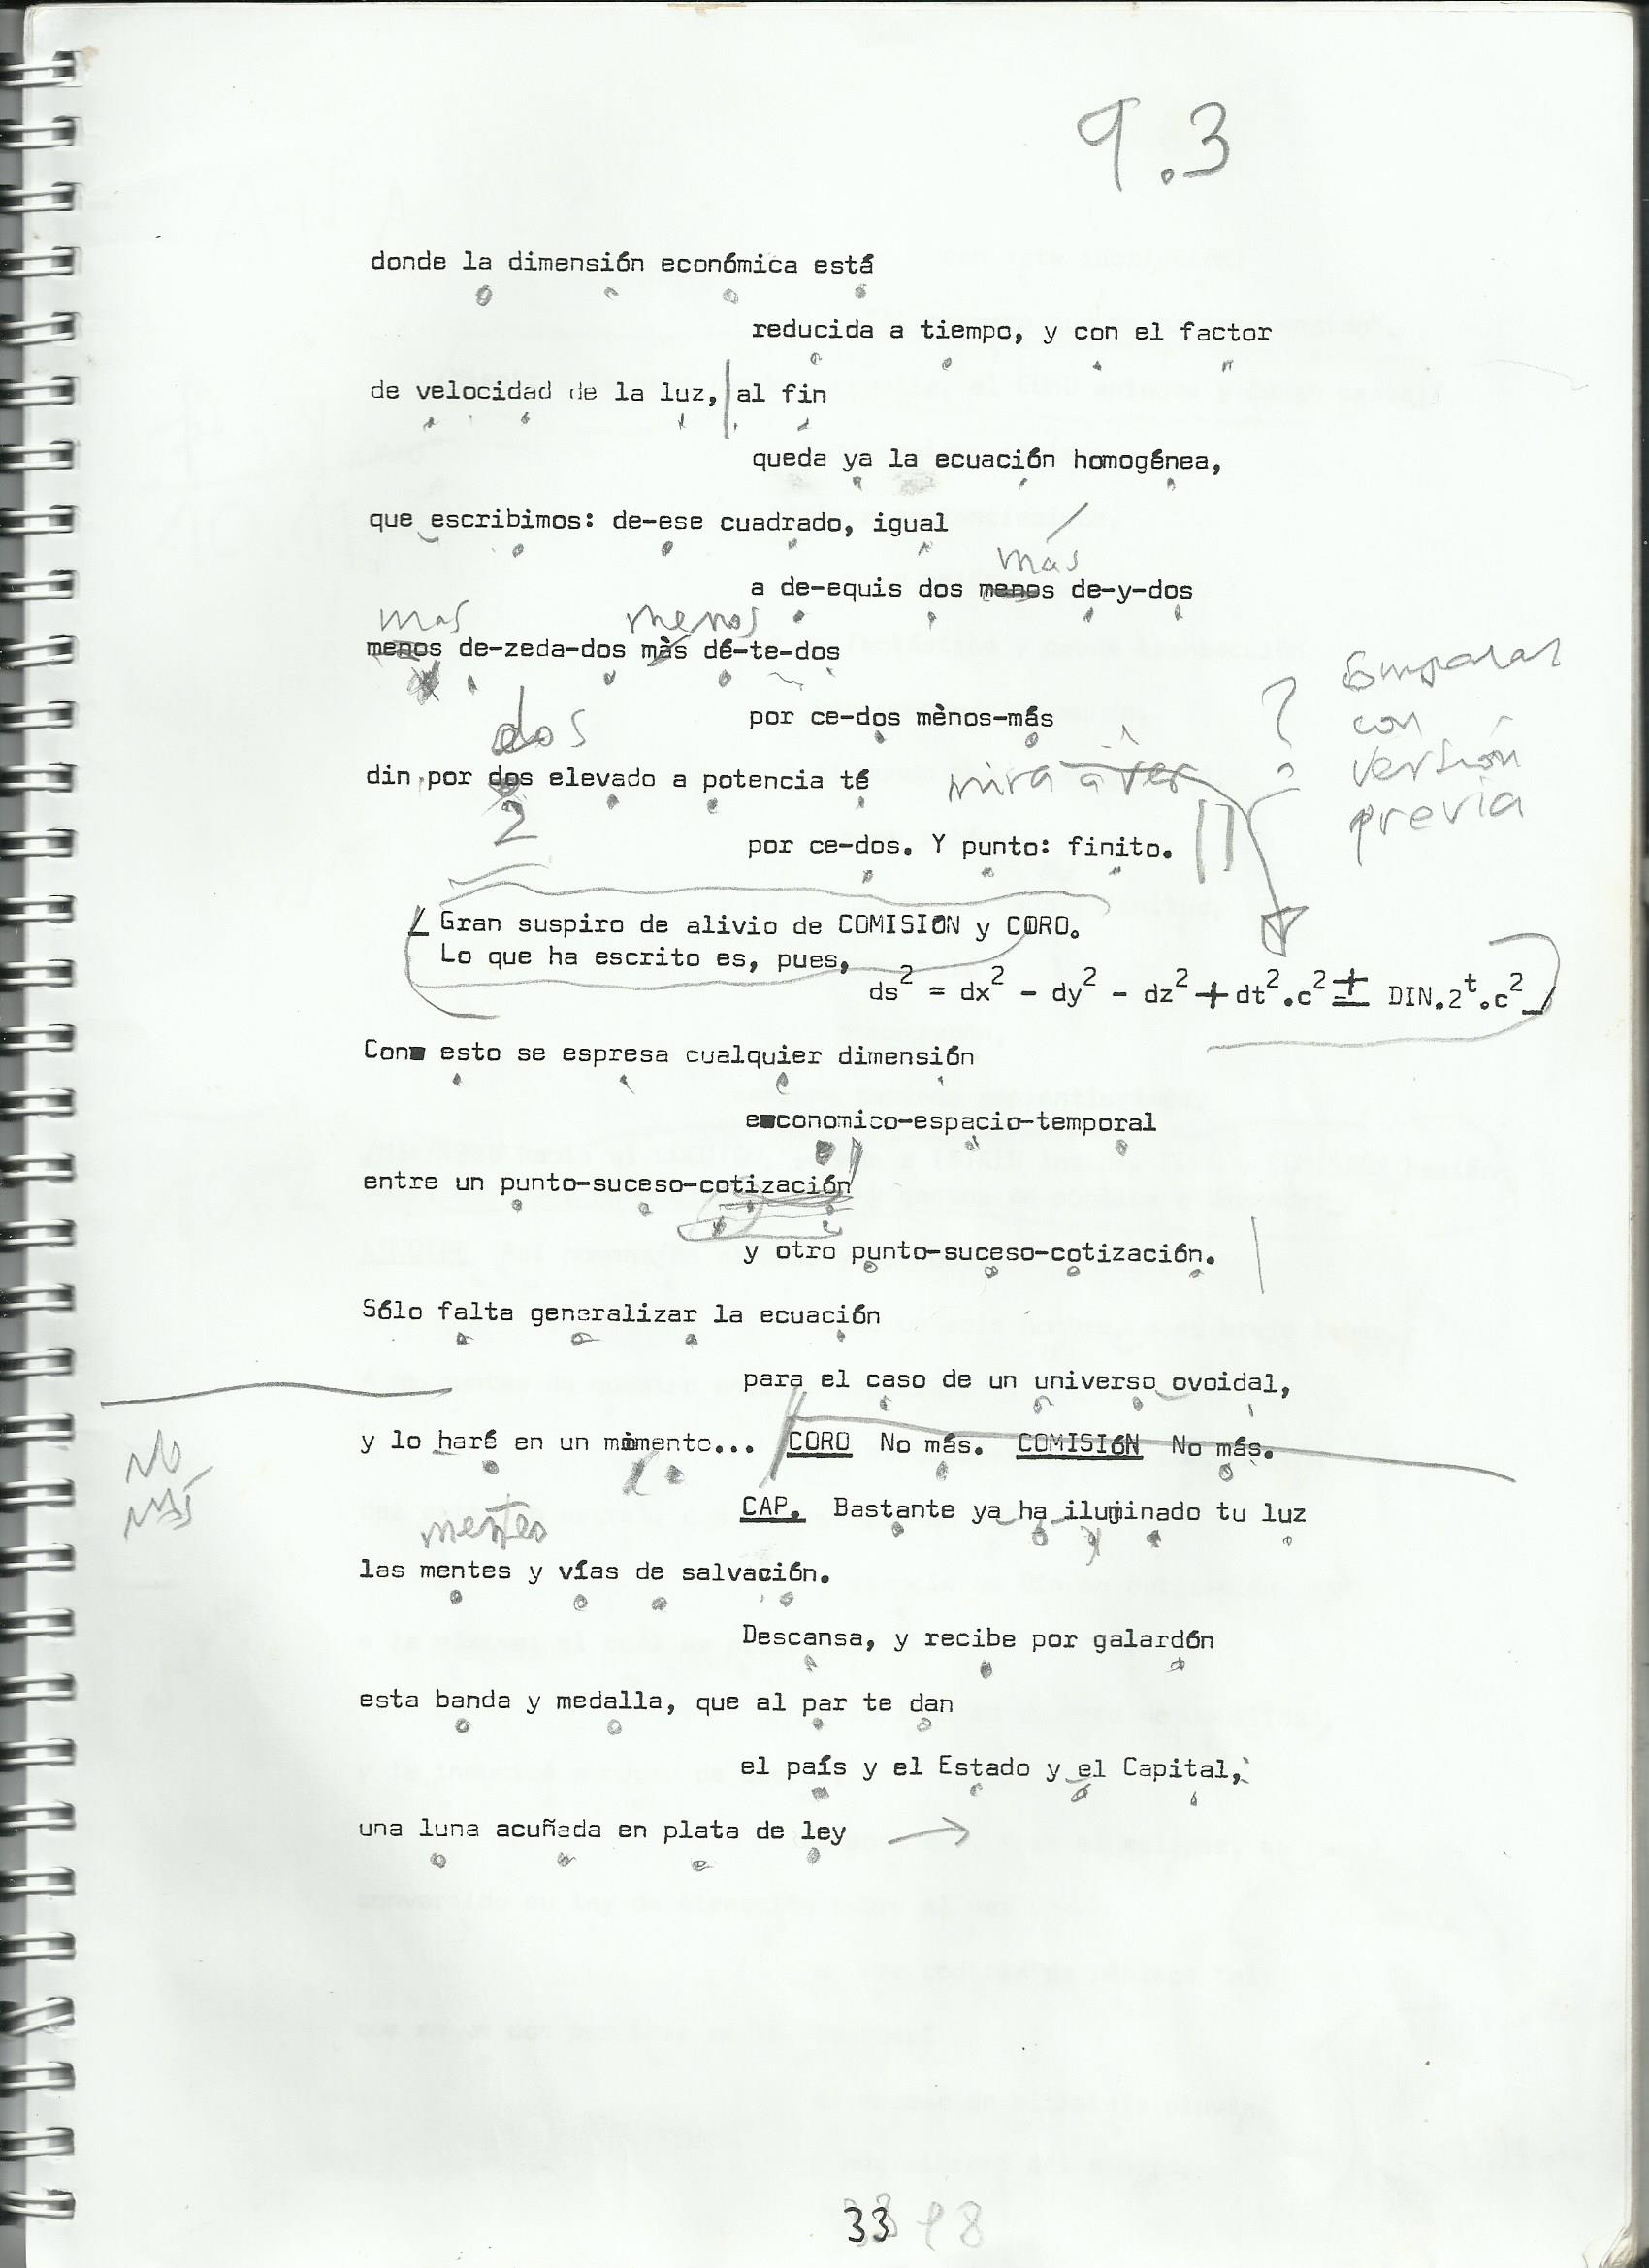 9.3
donde la dimensión económica está
reducida a tiempo, y con el factor
de velocidad de la luz, al fin
queda ya la ecuación homogénea,
que escribimos: de-ese cuadrado, igual
más
a de-equis dos menos de-y-dos
mas menos
menos de-zeda-dos màs dé-te-dos
dos
por ce-dos mènos-más
din por dos elevado a potencia té
mira a ver
2
por ce-dos. Y punto: finito.
? con
versión
previa
Gran suspiro de alivio de COMISION y CORO.
Lo que ha escrito es, pues,
ds² = dx² - dy² - dz² + dt².c² ± DIN.2ᵗ.c²
Con esto se espresa cualquier dimensión
economico-espacio-temporal
entre un punto-suceso-cotización
y otro punto-suceso-cotización.
Sólo falta generalizar la ecuación
para el caso de un universo ovoidal,
y lo haré en un momento... CORO No más. COMISIÓN No más.
NO
MÁS
CAP. Bastante ya ha iluminado tu luz
mentes
las mentes y vías de salvación.
Descansa, y recibe por galardón
esta banda y medalla, que al par te dan
el país y el Estado y el Capital,
una luna acuñada en plata de ley →
33 98